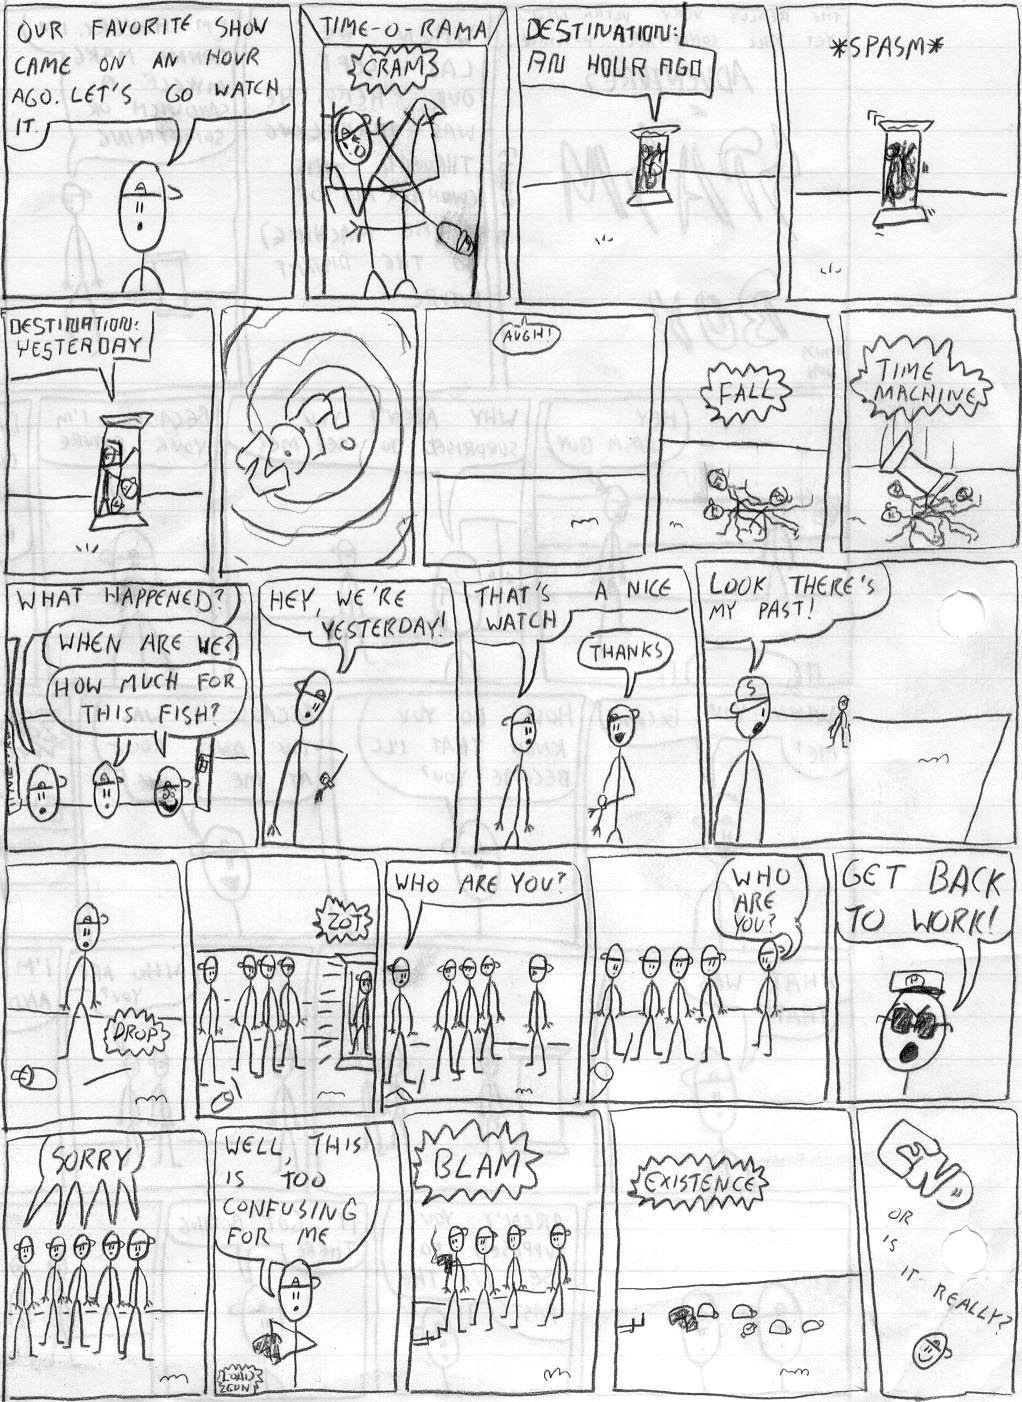 OUR FAVORITE SHOW
CAME ON AN HOUR
AGO. LET'S GO WATCH
IT.
TIME-O-RAMA
CRAM
DESTINATION:
AN HOUR AGO
*SPASM*
DESTINATION:
YESTERDAY
AUGH!
FALL
TIME
MACHINE
WHAT HAPPENED?
WHEN ARE WE?
HOW MUCH FOR
THIS FISH?
HEY, WE'RE
YESTERDAY!
THAT'S A NICE
WATCH
THANKS
LOOK THERE'S
MY PAST!
S
DROP
ZOT
WHO ARE YOU?
WHO
ARE
YOU?
GET BACK
TO WORK!
SORRY
WELL, THIS
IS TOO
CONFUSING
FOR ME
LOAD
GUN
BLAM
EXISTENCE
END
OR
IS
IT REALLY?